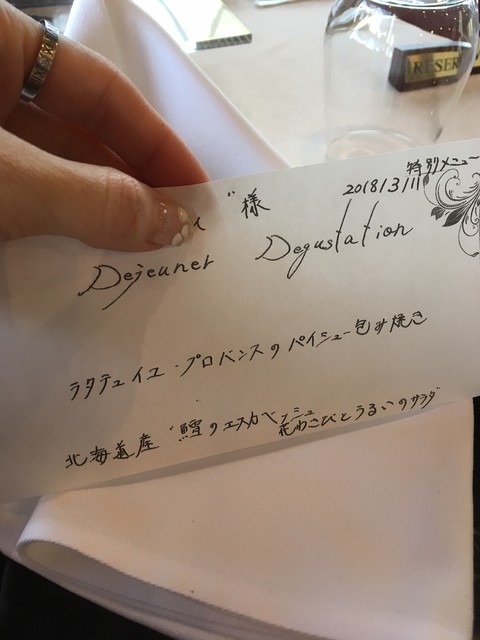 RESER
特別メニュー
2018/3/11
様
Dejeuner Degustation
ラタテュイユ・プロバンスのパイシュー包み焼き
北海道産 鱈のエスカベッシュ
花わさびとうるいのサラダ